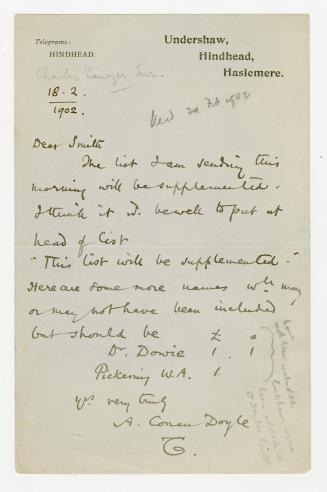 Telegrams:
HINDHEAD.
Undershaw,
Hindhead,
Haslemere.
18.2.
1902.
20 Feb 1902
Dear Smith
The list I am sending this
morning will be supplemented.
I think it wd. be well to put at
head of list
"This list will be supplemented."
Here are some more names wh may
or may not have been included
but should be £ s
Dr. Dowie 1 . 1
Pickering W.A. 1
yrs very truly
A. Conan Doyle